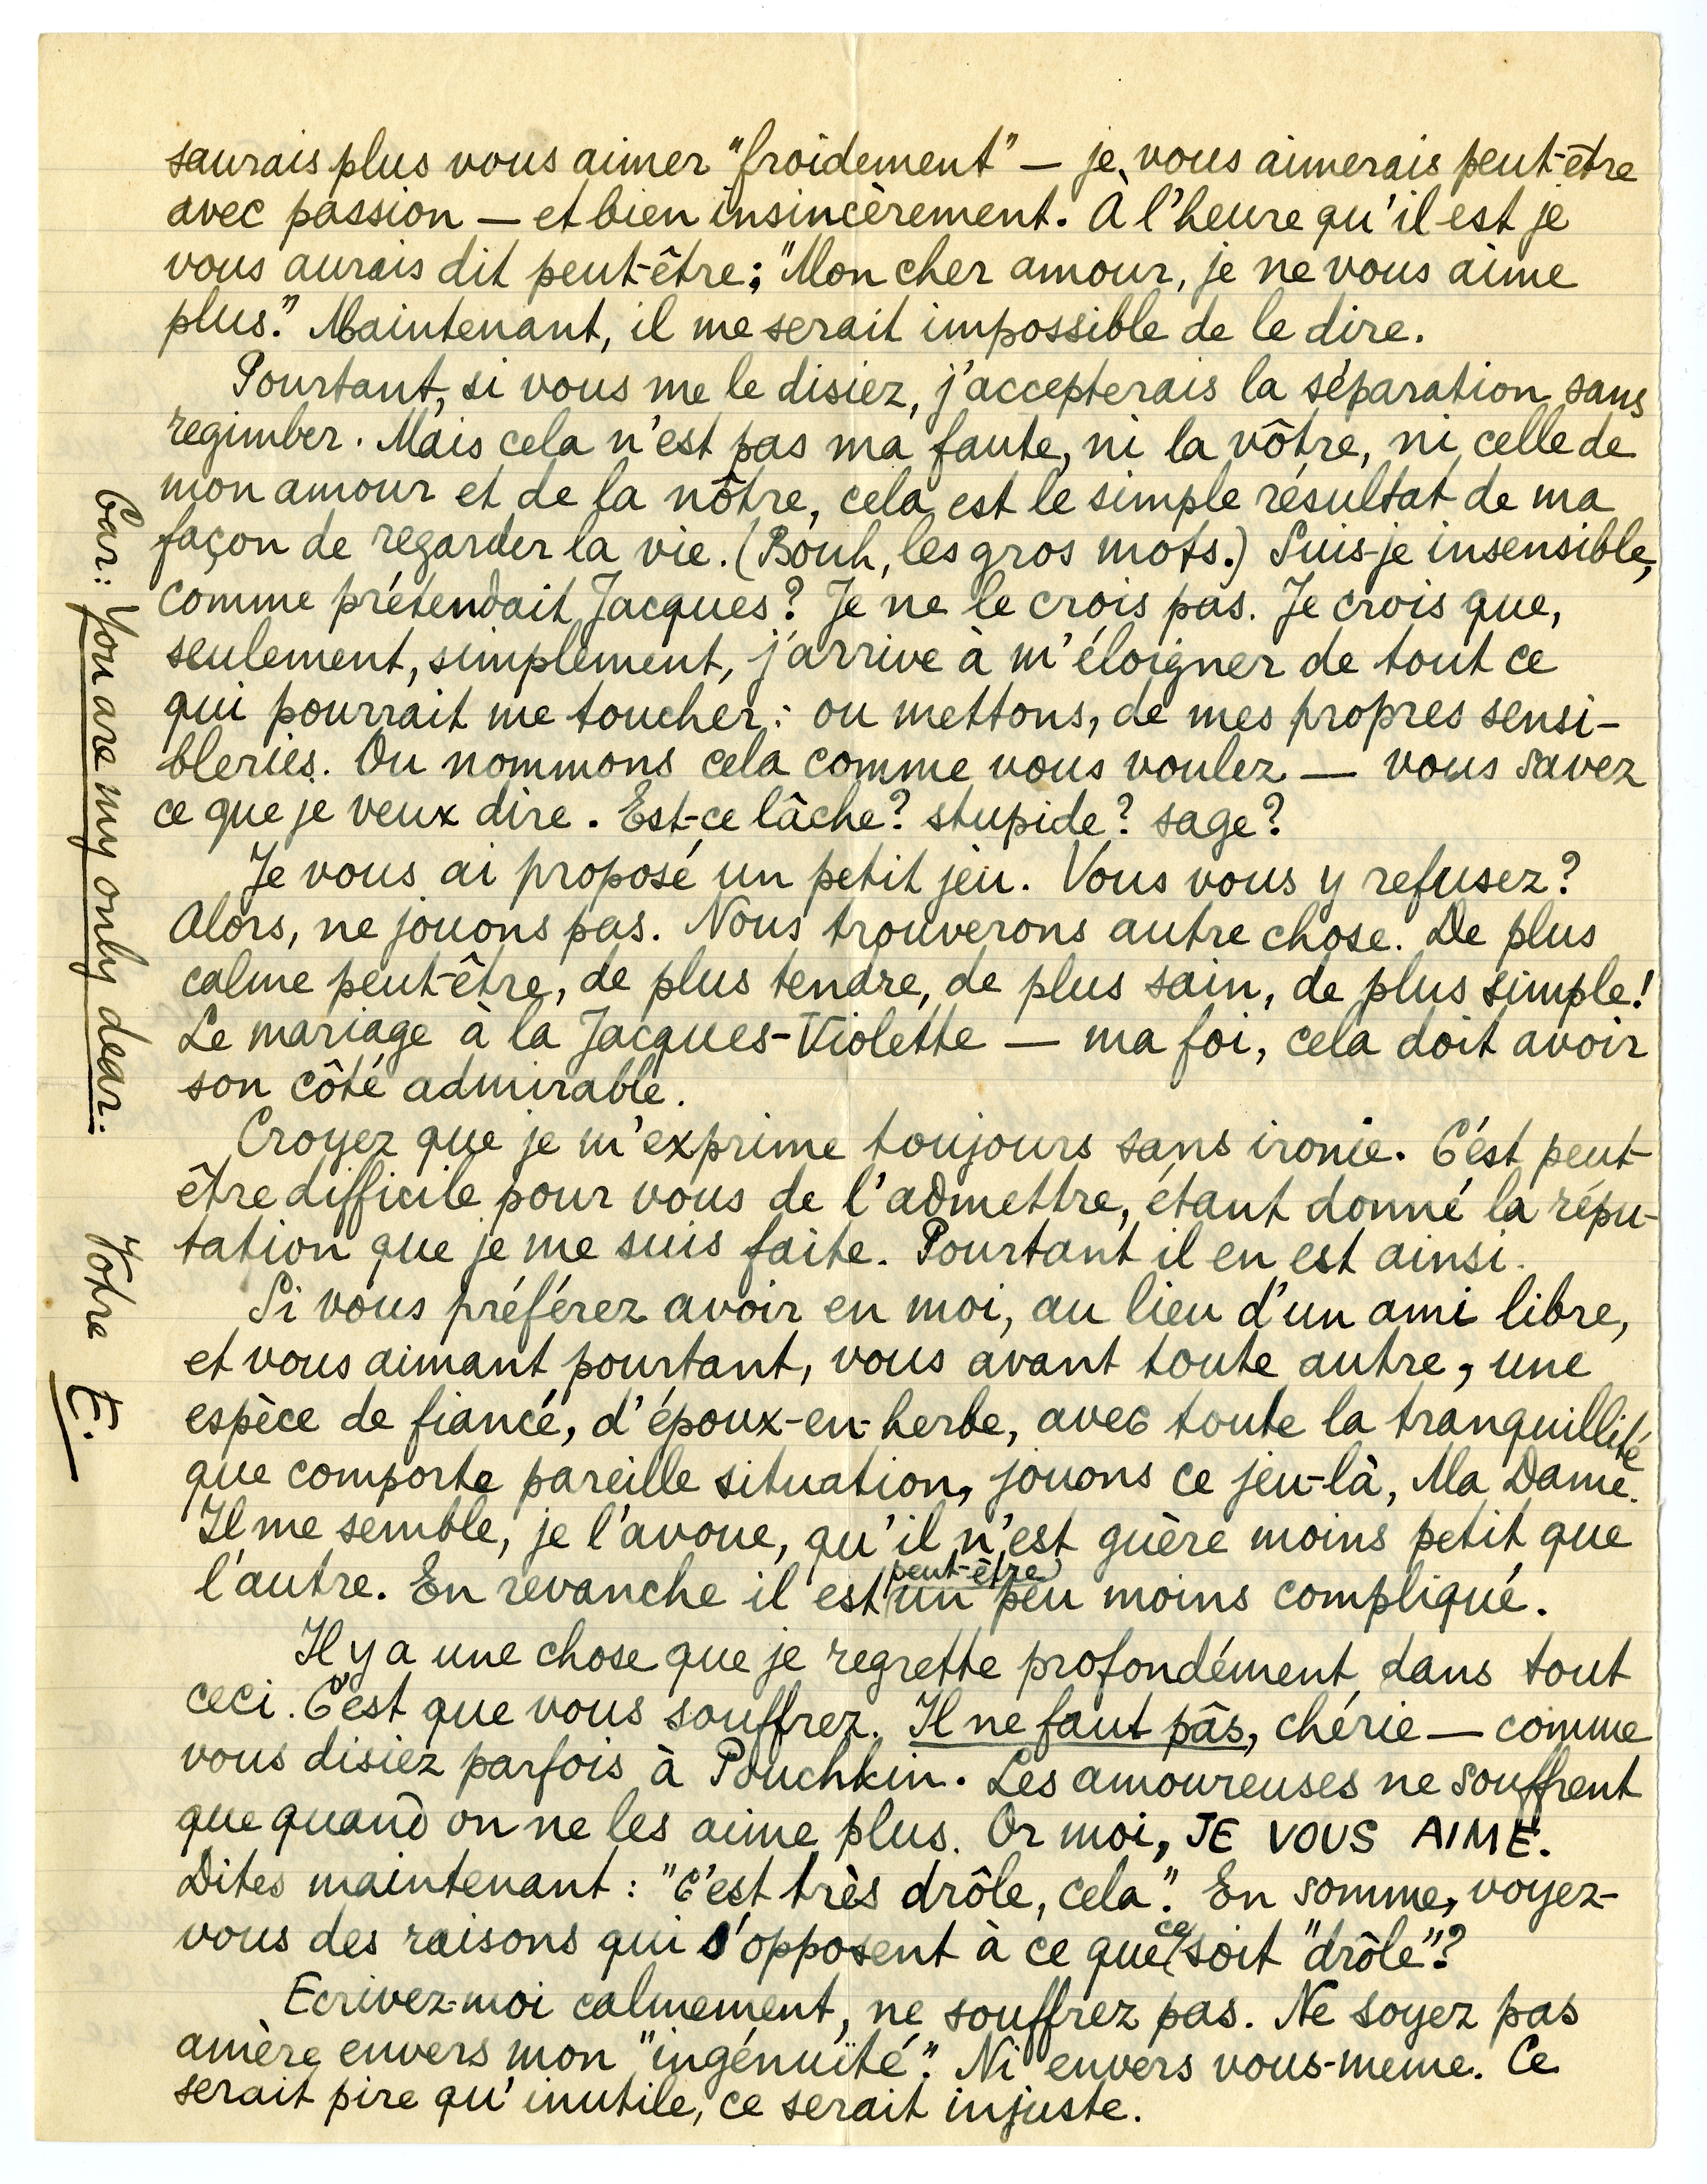 saurais plus vous aimer "froidement" — je vous aimerais peut-être
avec passion — et bien insincèrement. À l'heure qu'il est je
vous aurais dit peut-être; "Mon cher amour, je ne vous aime
plus." Maintenant, il me serait impossible de le dire.
Pourtant, si vous me le disiez, j'accepterais la séparation sans
regimber. Mais cela n'est pas ma faute, ni la vôtre, ni celle de
mon amour et de la nôtre, cela est le simple résultat de ma
façon de regarder la vie. (Bouh, les gros mots.) Suis-je insensible,
comme prétendait Jacques? Je ne le crois pas. Je crois que,
seulement, simplement, j'arrive à m'éloigner de tout ce
qui pourrait me toucher: ou mettons, de mes propres sensi-
bleries. Ou nommons cela comme vous voulez — vous savez
ce que je veux dire. Est-ce lâche? stupide? sage?
Je vous ai proposé un petit jeu. Vous vous y refusez?
Alors, ne jouons pas. Nous trouverons autre chose. De plus
calme peut-être, de plus tendre, de plus sain, de plus simple!
Le mariage à la Jacques-Violette — ma foi, cela doit avoir
son côté admirable.
Croyez que je m'exprime toujours sans ironie. C'est peut-
être difficile pour vous de l'admettre, étant donné la répu-
tation que je me suis faite. Pourtant il en est ainsi.
Si vous préférez avoir en moi, au lieu d'un ami libre,
et vous aimant pourtant, vous avant toute autre, une
espèce de fiancé, d'époux-en-herbe, avec toute la tranquillité
que comporte pareille situation, jouons ce jeu-là, Ma Dame.
Il me semble, je l'avoue, qu'il n'est guère moins petit que
l'autre. En revanche il est peut-être un peu moins compliqué.
Il y a une chose que je regrette profondément dans tout
ceci. C'est que vous souffrez. Il ne faut pâs, chérie — comme
vous disiez parfois à Pouchkin. Les amoureuses ne souffrent
que quand on ne les aime plus. Or moi, JE VOUS AIME.
Dites maintenant: "C'est très drôle, cela". En somme, voyez-
vous des raisons qui s'opposent à ce que ce soit "drôle"?
Ecrivez-moi calmement, ne souffrez pas. Ne soyez pas
amère envers mon "ingénuïté". Ni envers vous-meme. Ce
serait pire qu'inutile, ce serait injuste.
Car: You are my only dear: Votre E.